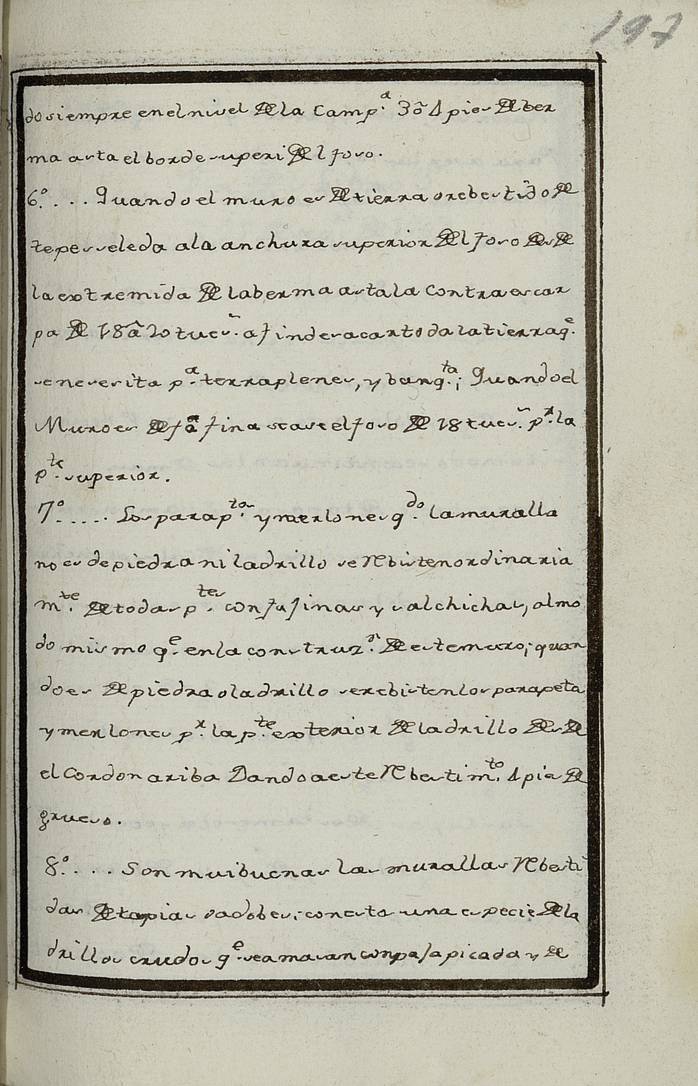 197
do siempre en el nivel de la Camp.ª 3 ô 4 pies de ber
ma asta el borde superi del foso.
6.º . . . Quando el muro es de tierra o rebestido de
tepes se le da a la anchura superior del foso des de
la extremida de la berma asta la contraescar
pa de 18 â 20 tues.ˢ a fin de sacar toda la tierra q.ᵉ
se nesesita p.ª terraplenes, y banq.ᵗᵃ; Quando el
Muro es de faxina se ase el foso de 18 tues.ˢ p.ʳ la
p.ᵗᵉ superior.
7.º ..... Los parap.ᵗᵒˢ y merlones q.ᵈᵒ la muralla
no es de piedra ni ladrillo se Rebisten ordinaria
m.ᵗᵉ de todas p.ᵗᵉˢ con fajinas y salchichas, al mo
do mismo q.ᵉ en la construz.ⁿ de este muro; quan
do es de piedra o ladrillo se rebisten los parapeta
y merlones p.ʳ la p.ᵗᵉ exterior de ladrillo des de
el Cordon ariba Dando a este Rbestim.ᵗᵒ 4 pies de
grueso.
8.º . . . Son mui buenas las murallas Rbesti
das de tapias o adobes; con esto una especie de la
drillos crudos q.ᵉ se amasan con paja picada y de